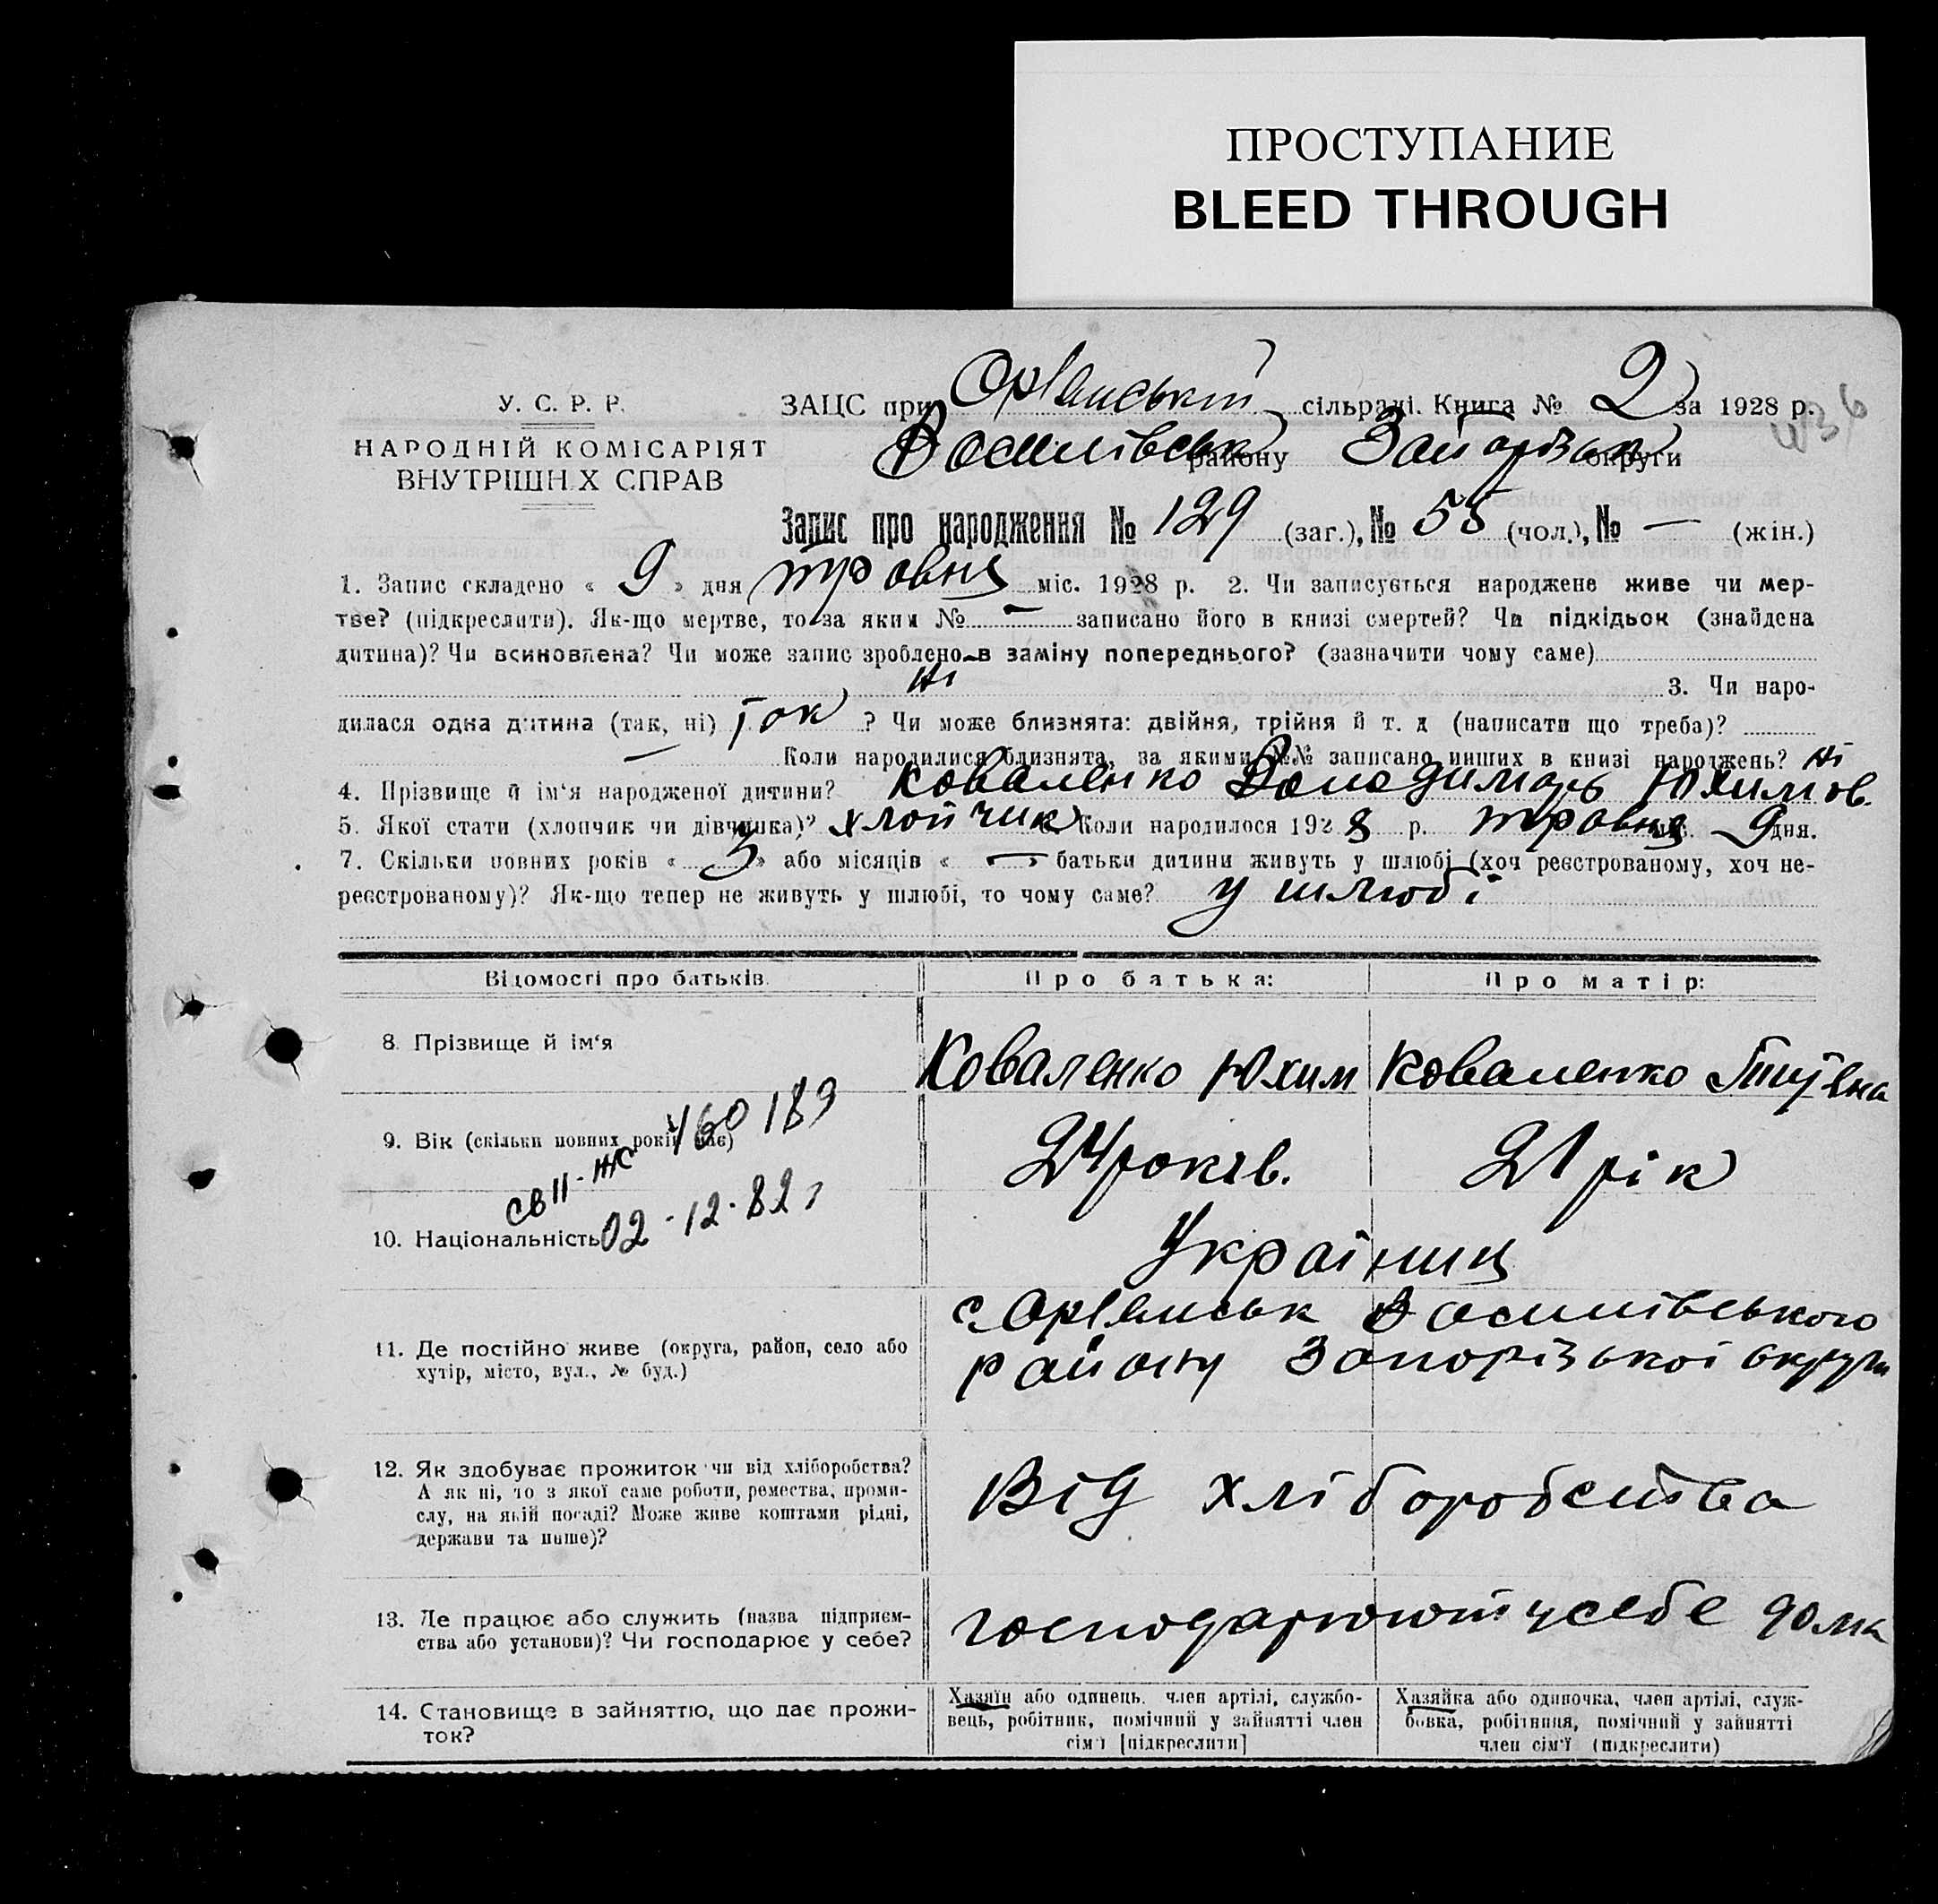 ПРОСТУПАНИЕ
BLEED THROUGH
У. С. Р. Р.
НАРОДНІЙ КОМІСАРІЯТ
ВНУТРІШНІХ СПРАВ
ЗАЦС при Орʼянській сільраді. Книга № 2 за 1928 р.
Василівськ району Запорізьк округи
Запис про народження № 129 (заг.), № 55 (чол.), № — (жін.)
1. Запис складено « 9 » дня травня міс. 1928 р. 2. Чи записується народжене живе чи мер-
тве? (підкреслити). Як-що мертве, то за яким № — записано його в книзі смертей? Чи підкідьок (знайдена
дитина)? Чи всиновлена? Чи може запис зроблено в заміну попереднього? (зазначити чому саме)
Ні 3. Чи наро-
дилася одна дитина (так, ні) Так ? Чи може близнята: двійня, трійня й т. д (написати що треба)?
— Коли народилися близнята, за якими №№ записано инших в книзі народжень? Ні
4. Прізвище й ім‘я народженої дитини? Коваленко Володимирь Юхимов.
5. Якої стати (хлопчик чи дівчинка)? хлопчик Коли народилося 1928 р. травня міс. 9 дня.
7. Скільки повних років « 3 » або місяців « — батьки дитини живуть у шлюбі (хоч реєстрованому, хоч не-
реєстрованому)? Як-що тепер не живуть у шлюбі, то чому саме? у шлюбі
Відомості про батьків.
Про батька:
Про матір:
8. Прізвище й ім‘я
Коваленко Юхим
Коваленко
9. Вік (скільки повних років має)
24 років.
21 рік
460189
02·12·82
10. Національність
Українци
11. Де постійно живе (округа, район, село або
хутір, місто, вул., № буд.)
с. Орʼянськ Василівського
району Запорізької округи
12. Як здобуває прожиток чи від хліборобства?
А як ні, то з якої саме роботи, ремества, проми-
слу, на якій посаді? Може живе коштами рідні,
держави та инше)?
Від хліборобства
13. Де працює або служить (назва підприєм-
ства або установи)? Чи господарює у себе?
господарюют у себе дома
14. Становище в зайняттю, що дає прожи-
ток?
Хазяїн або одинець, член артілі, службо-
вець, робітник, помічний у зайнятті член
сім‘ї [підкреслити]
Хазяйка або одиночка, член артілі, служ-
бовка, робітниця, помічний у зайнятті
член сім‘ї (підкреслити)